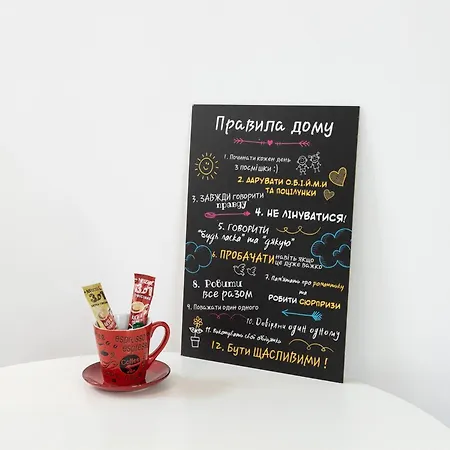 Правила дому
1. Починати кожен день
з посмішки :)
2. ДАРУВАТИ ОБІЙМИ
ТА ПОЦІЛУНКИ
3. ЗАВЖДИ ГОВОРИТИ
правду
4. НЕ ЛІНУВАТИСЯ!
5. ГОВОРИТИ
"будь ласка" та "дякую"
6. ПРОБАЧАТИ навіть якщо
це дуже важко
7. Пам'ятати про романтику
та
РОБИТИ СЮРПРИЗИ
8. Робити
все разом
9. Поважати один одного
10. Довіряти один одному
11. Виконувати свої обіцянки
12. Бути ЩАСЛИВИМИ!
3в1
3в1
Coffee